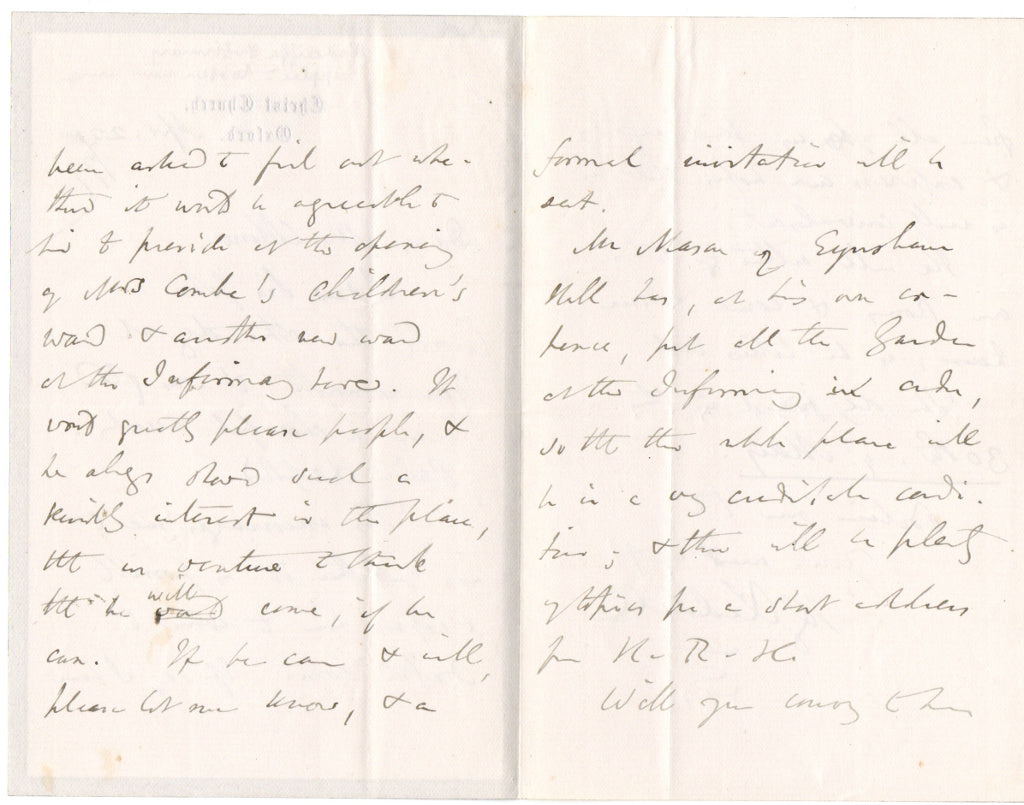 been asked to find out whe-
ther it would be agreeable to
him to preside at the opening
of Mrs Combe's Children's
ward & another new ward
at the Infirmary here. It
would greatly please people, &
he always showed such a
kindly interest in the place,
tht we venture to think
tht he will would come, if he
can. If he can & will,
please let me know, & a
formal invitation will be
sent.
Mr Mason of Eynsham
Hall has, at his own ex-
pense, put all the Garden
at the Infirmary in order,
so tht the whole place will
be in a very creditable condi-
tion; & there will be plenty
of topics for a short address
from H. R. H.
Will you convey to him
Christ Church,
Oxford.